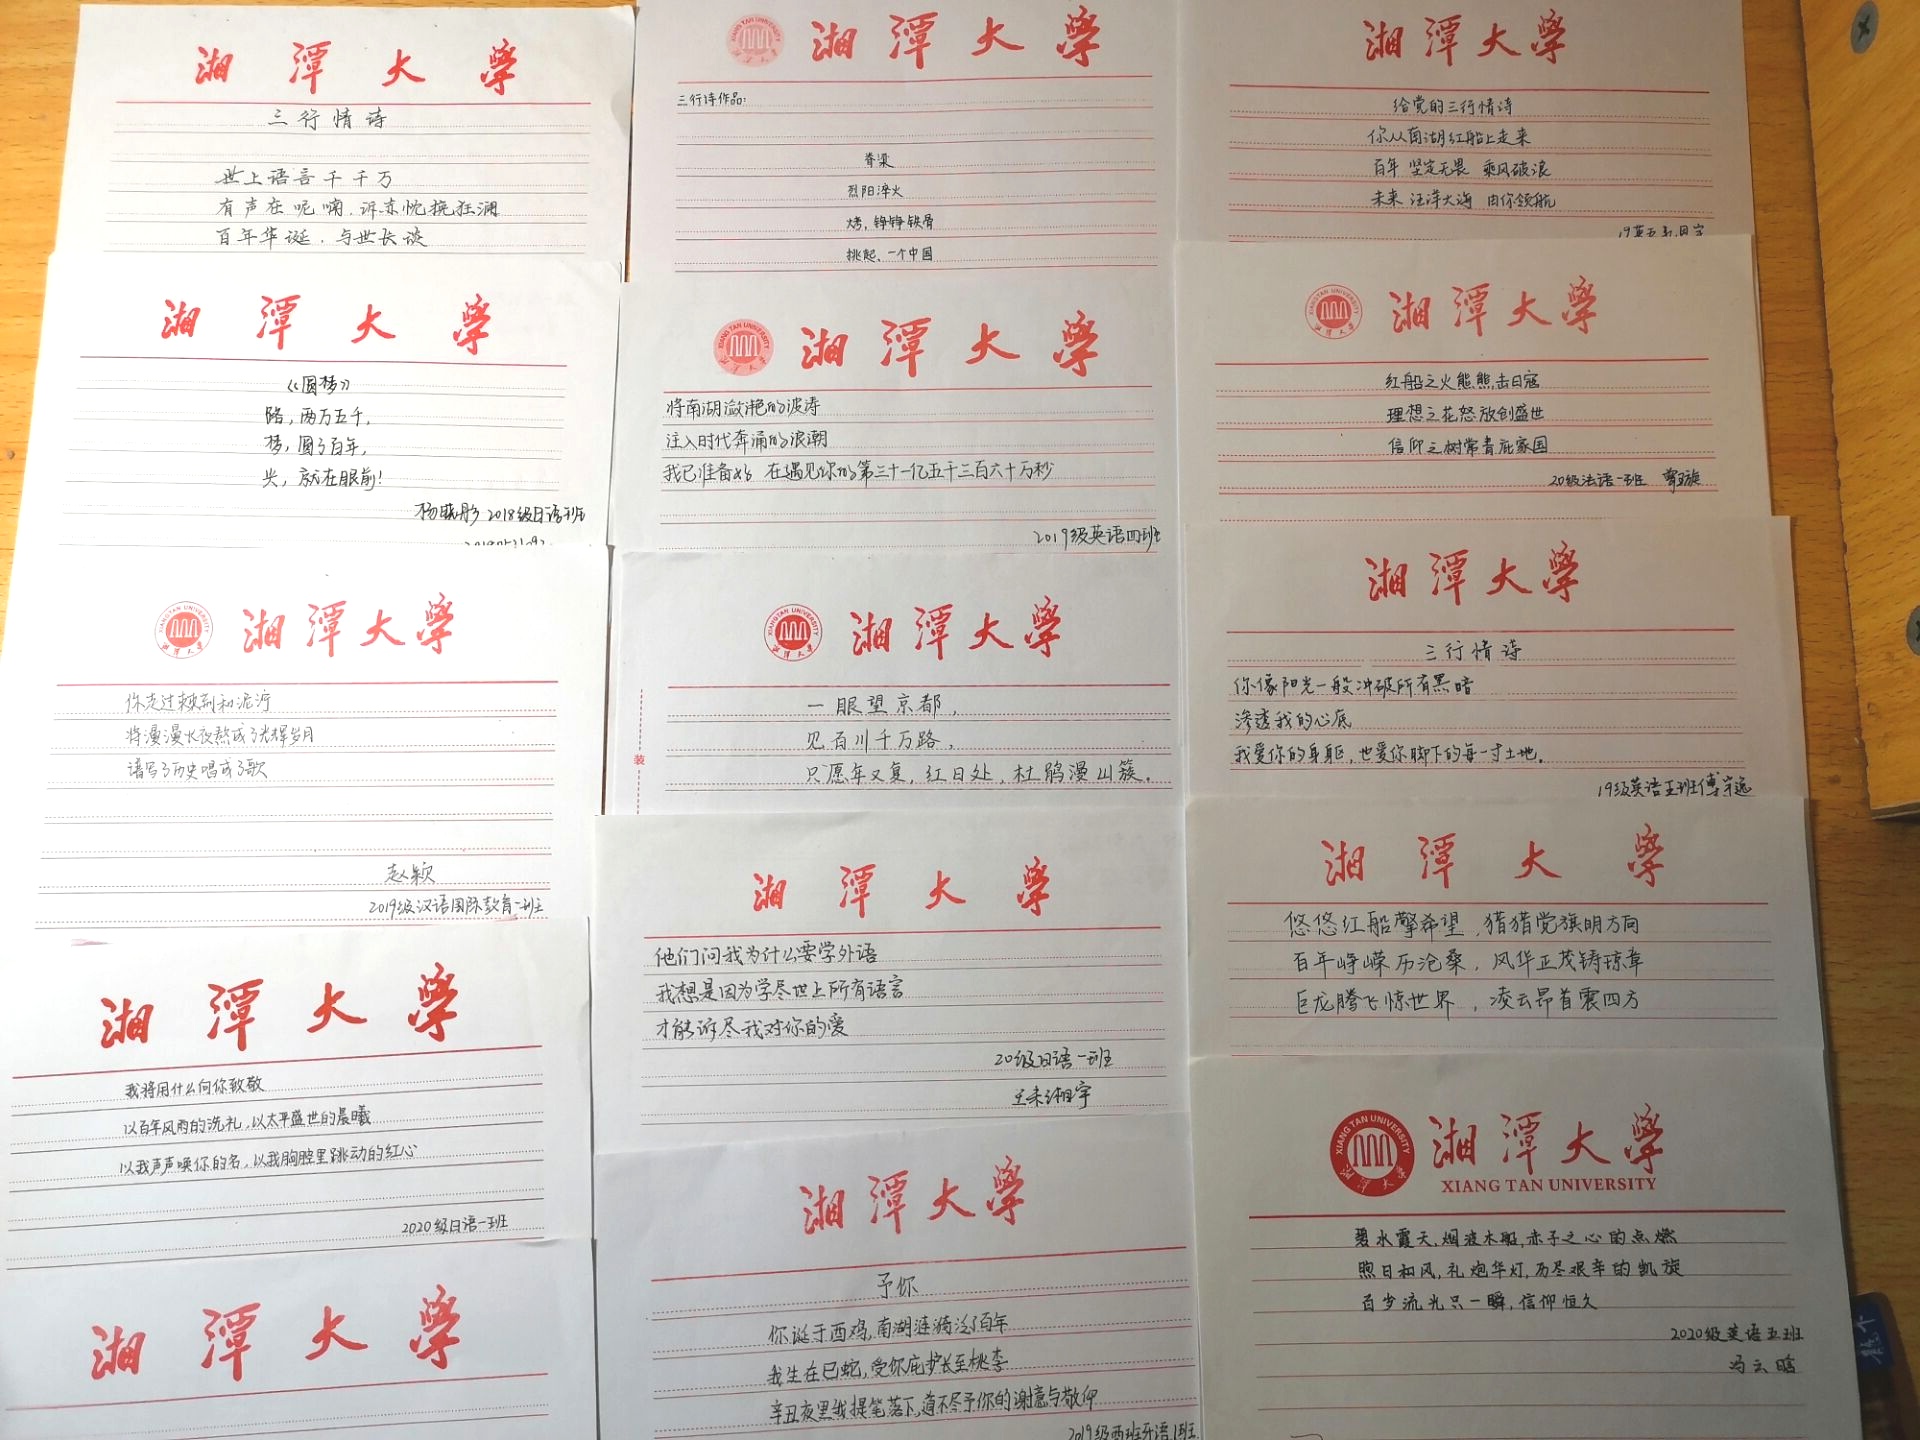 湘潭大学
三行情诗
世上语言千千万
有声在呢喃,诉赤忱挽狂澜
百年华诞,与世长谈
湘潭大学
《圆梦》
路,两万五千,
梦,圆了百年,
光,就在眼前!
杨晓彤 2018级日语班
湘潭大学
XIANGTAN UNIVERSITY
你走过荆棘和泥泞
将漫漫长夜熬成了光辉岁月
谱写了历史唱成了歌
赵颖
2019级汉语国际教育一班
湘潭大学
我将用什么向你致敬
以百年风雨的洗礼,以太平盛世的晨曦
以我声声唤你的名,以我胸腔里跳动的红心
2020级日语一班
湘潭大学
湘潭大学
三行诗作品:
脊梁
烈阳淬火
烤,铮铮铁骨
挑起、一个中国
XIANG TAN UNIVERSITY
湘潭大学
将南湖潋滟的波涛
注入时代奔涌的浪潮
我已准备好 在遇见你的第三十一亿五千三百六十万秒
2019级英语四班
XIANGTAN UNIVERSITY
湘潭大学
装
一眼望京都,
见百川千万路,
只愿年又复,红日处,杜鹃漫山簇。
湘潭大学
他们问我为什么要学外语
我想是因为学尽世上所有语言
才能诉尽我对你的爱
20级日语一班
湘潭大学
予你
你诞于酉鸡,南湖涟漪泛了百年
我生在巳蛇,受你庇护长至桃李
辛丑夜里我提笔落下,道不尽予你的谢意与敬仰
2019级西班牙语1班
湘潭大学
给党的三行情诗
你从南湖红船上走来
百年 坚定无畏 乘风破浪
未来 汪洋大海 由你领航
XIANG TAN UNIVERSITY
湘潭大学
红船之火熊熊击日寇
理想之花怒放创盛世
信仰之树常青庇家国
20级法语一班
湘潭大学
三行情诗
你像阳光一般冲破所有黑暗
渗透我的心底
我爱你的身躯,也爱你脚下的每一寸土地。
19级英语五班傅宇远
湘潭大学
悠悠红船擎希望,猎猎党旗明方向
百年峥嵘历沧桑,风华正茂铸琼章
巨龙腾飞惊世界,凌云昂首震四方
XIANG TAN UNIVERSITY
湘潭大学
XIANG TAN UNIVERSITY
碧水霞天,烟波木船,赤子之心的点燃
煦日和风,礼炮华灯,历尽艰辛的凯旋
百岁流光只一瞬,信仰恒久
2020级英语五班
冯云晗